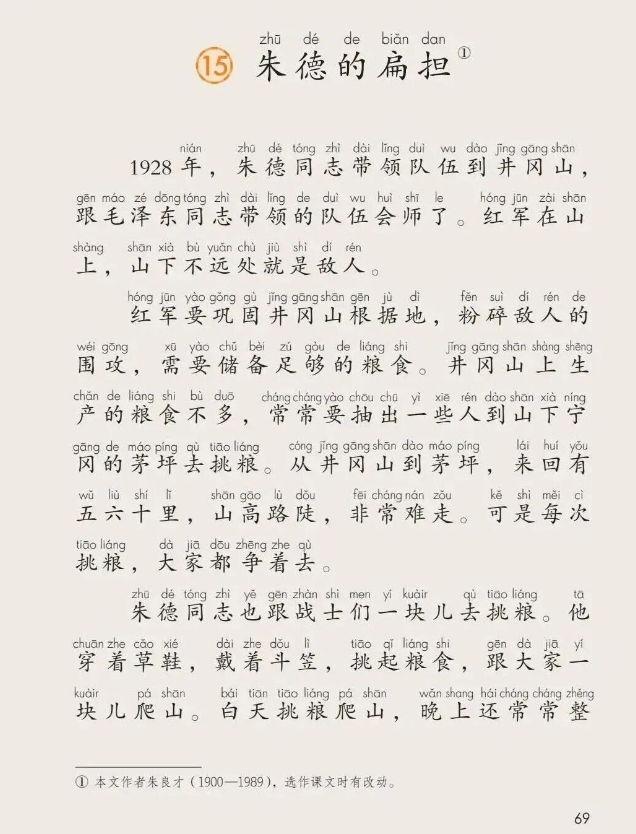 zhū dé de biǎn dan
⑮ 朱德的扁担①
nián zhū dé tóng zhì dài lǐng duì wu dào jǐng gāng shān
1928 年，朱德同志带领队伍到井冈山，
gēn máo zé dōng tóng zhì dài lǐng de duì wu huì shī le hóng jūn zài shān
跟毛泽东同志带领的队伍会师了。红军在山
shàng shān xià bù yuǎn chù jiù shì dí rén
上，山下不远处就是敌人。
hóng jūn yào gǒng gù jǐng gāng shān gēn jù dì fěn suì dí rén de
红军要巩固井冈山根据地，粉碎敌人的
wéi gōng xū yào chǔ bèi zú gòu de liáng shi jǐng gāng shān shàng shēng
围攻，需要储备足够的粮食。井冈山上生
chǎn de liáng shi bù duō cháng cháng yào chōu chū yì xiē rén dào shān xià níng
产的粮食不多，常常要抽出一些人到山下宁
gāng de máo píng qù tiāo liáng cóng jǐng gāng shān dào máo píng lái huí yǒu
冈的茅坪去挑粮。从井冈山到茅坪，来回有
wǔ liù shí lǐ shān gāo lù dǒu fēi cháng nán zǒu kě shì měi cì
五六十里，山高路陡，非常难走。可是每次
tiāo liáng dà jiā dōu zhēng zhe qù
挑粮，大家都争着去。
zhū dé tóng zhì yě gēn zhàn shì men yí kuàir qù tiāo liáng tā
朱德同志也跟战士们一块儿去挑粮。他
chuān zhe cǎo xié dài zhe dǒu lì tiāo qǐ liáng shi gēn dà jiā yí
穿着草鞋，戴着斗笠，挑起粮食，跟大家一
kuàir pá shān bái tiān tiāo liáng pá shān wǎn shang hái cháng cháng zhěng
块儿爬山。白天挑粮爬山，晚上还常常整
① 本文作者朱良才（1900—1989），选作课文时有改动。
69